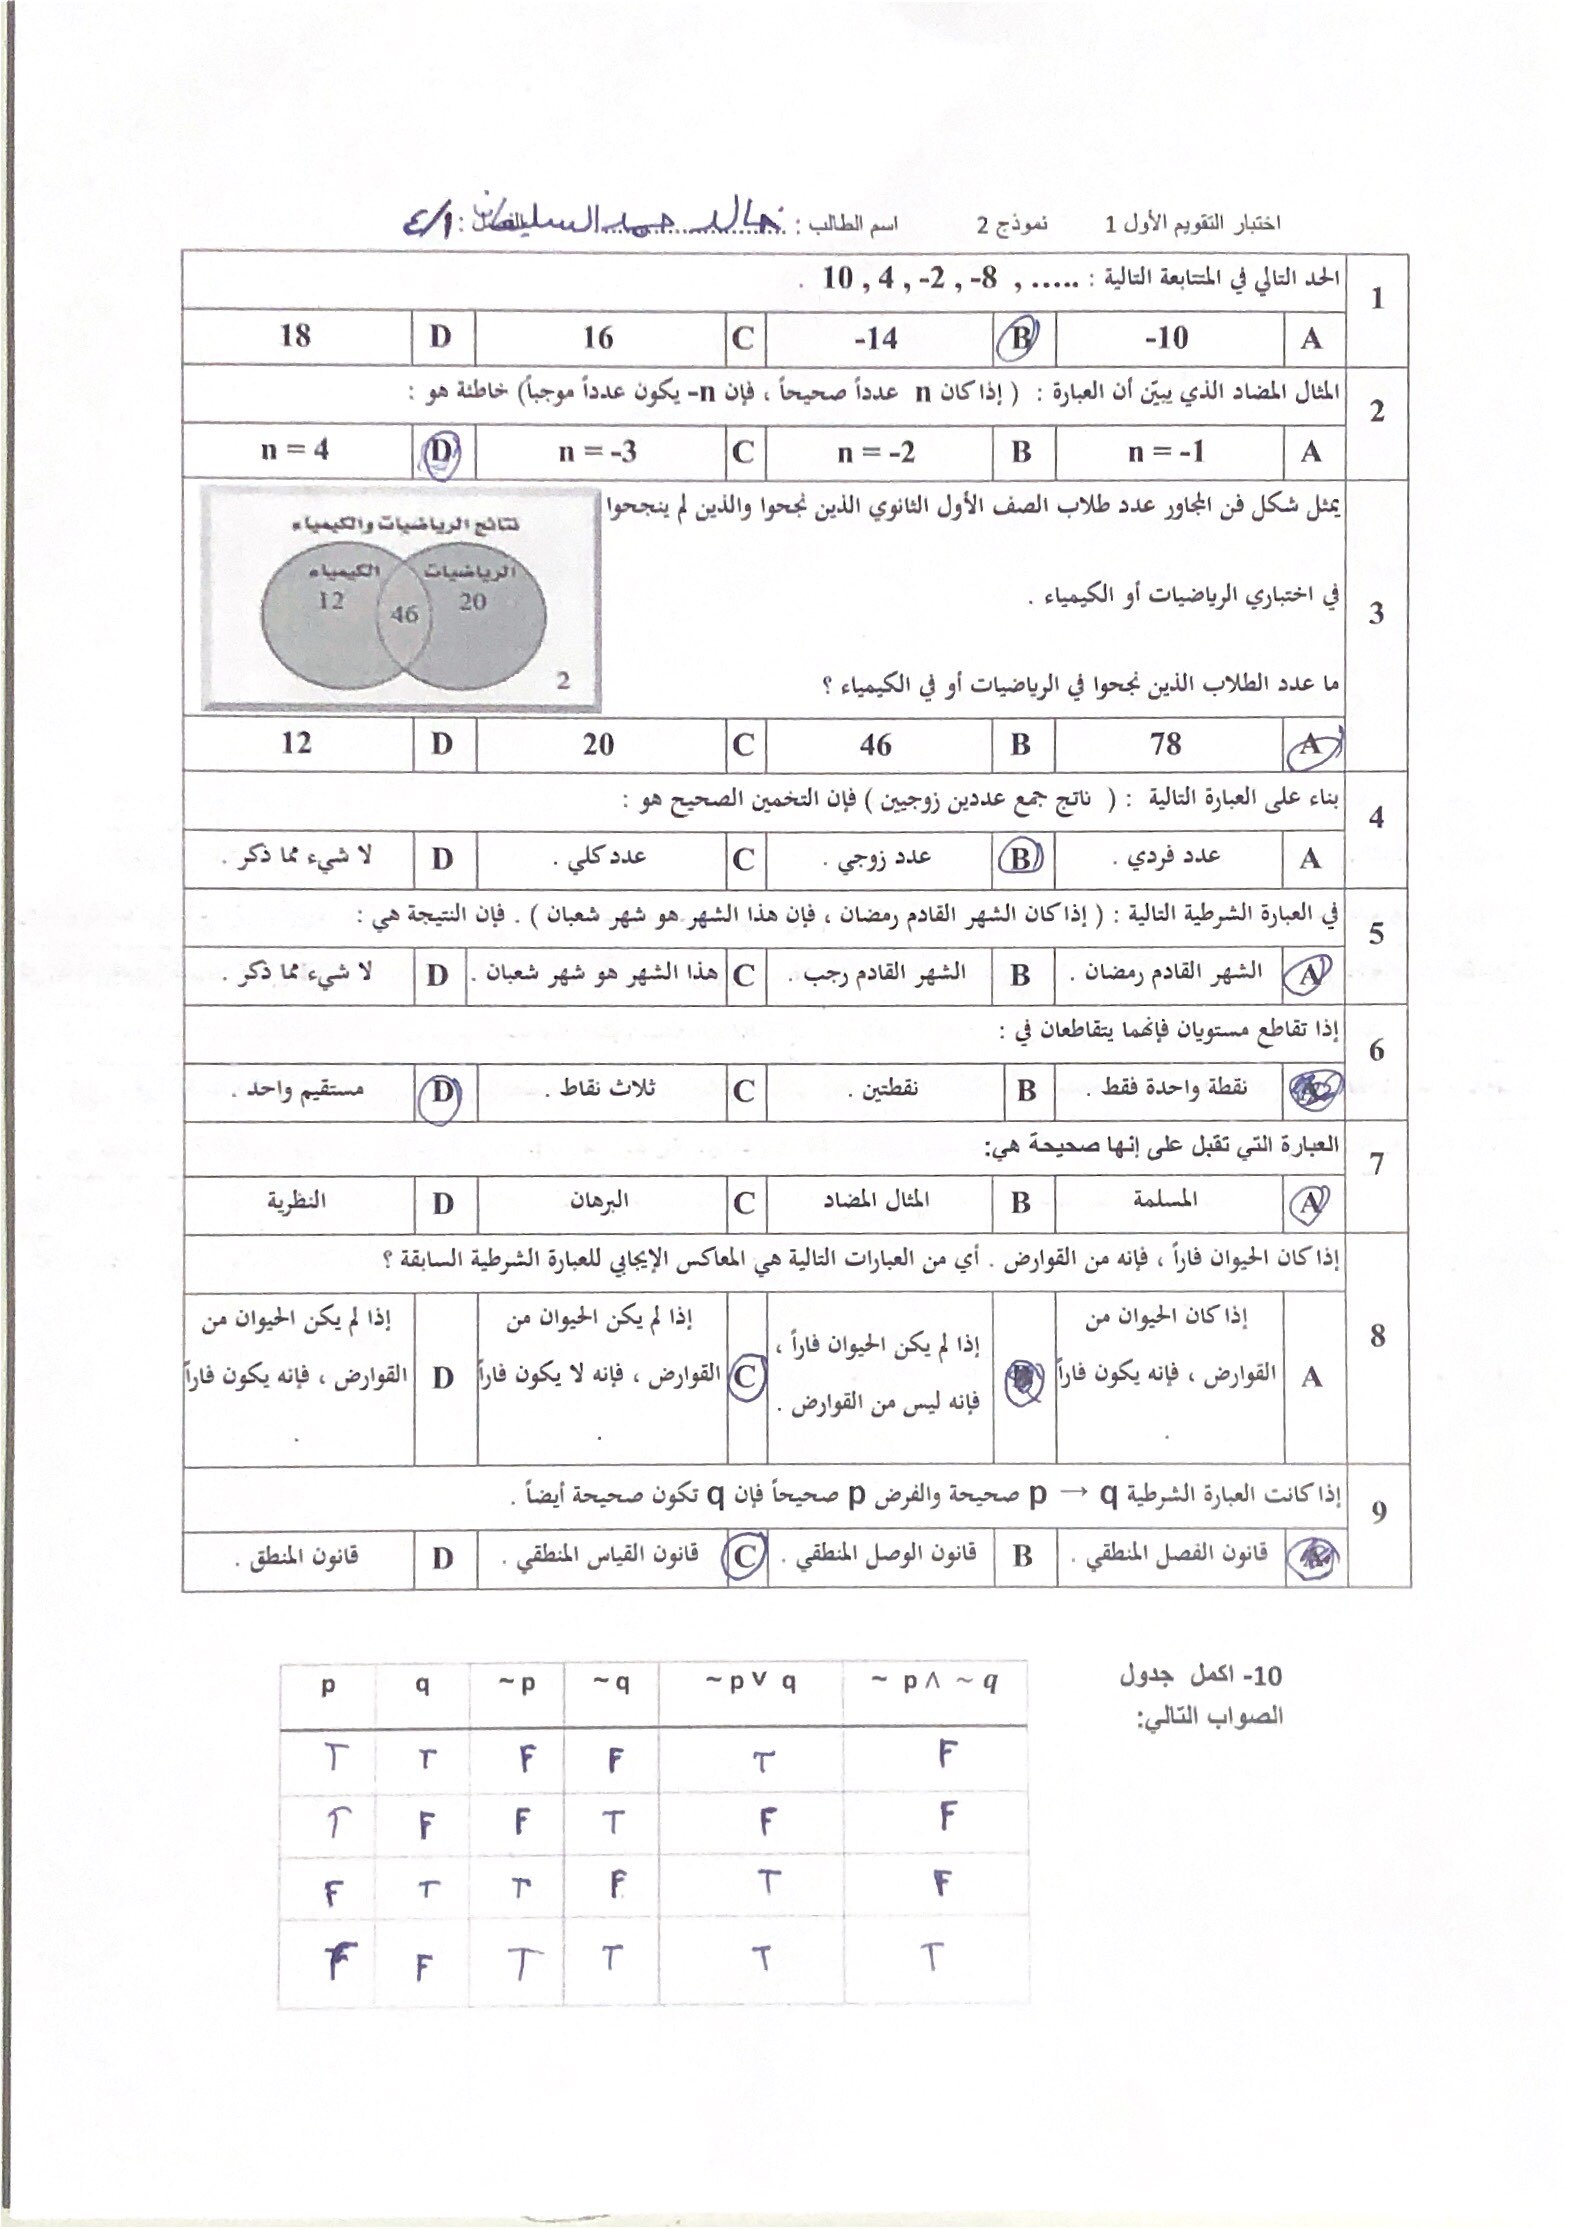 اختبار التقويم الأول 1 نموذج 2 اسم الطالب : خالد حمد السليمان : ٤/١
1 الحد التالي في المتتابعة التالية : ..... , 10 , 4 , -2 , -8 .
A -10 B -14 C 16 D 18
2 المثال المضاد الذي يبيّن أن العبارة : ( إذا كان n عدداً صحيحاً ، فإن n- يكون عدداً موجباً) خاطئة هو :
A n = -1 B n = -2 C n = -3 D n = 4
3 يمثل شكل فن المجاور عدد طلاب الصف الأول الثانوي الذين نجحوا والذين لم ينجحوا
في اختباري الرياضيات أو الكيمياء .
ما عدد الطلاب الذين نجحوا في الرياضيات أو في الكيمياء ؟
نتائج الرياضيات والكيمياء
الرياضيات الكيمياء
20 46 12
2
A 78 B 46 C 20 D 12
4 بناء على العبارة التالية : ( ناتج جمع عددين زوجيين ) فإن التخمين الصحيح هو :
A عدد فردي . B عدد زوجي . C عدد كلي . D لا شيء مما ذكر .
5 في العبارة الشرطية التالية : ( إذا كان الشهر القادم رمضان ، فإن هذا الشهر هو شهر شعبان ) . فإن النتيجة هي :
A الشهر القادم رمضان . B الشهر القادم رجب . C هذا الشهر هو شهر شعبان . D لا شيء مما ذكر .
6 إذا تقاطع مستويان فإنهما يتقاطعان في :
A نقطة واحدة فقط . B نقطتين . C ثلاث نقاط . D مستقيم واحد .
7 العبارة التي تقبل على إنها صحيحة هي:
A المسلمة B المثال المضاد C البرهان D النظرية
8 إذا كان الحيوان فاراً ، فإنه من القوارض . أي من العبارات التالية هي المعاكس الإيجابي للعبارة الشرطية السابقة ؟
A إذا كان الحيوان من القوارض ، فإنه يكون فاراً . B إذا لم يكن الحيوان فاراً ، فإنه ليس من القوارض . C إذا لم يكن الحيوان من القوارض ، فإنه لا يكون فاراً . D إذا لم يكن الحيوان من القوارض ، فإنه يكون فاراً .
9 إذا كانت العبارة الشرطية p → q صحيحة والفرض p صحيحاً فإن q تكون صحيحة أيضاً .
A قانون الفصل المنطقي . B قانون الوصل المنطقي . C قانون القياس المنطقي . D قانون المنطق .
10- اكمل جدول
الصواب التالي:
p q ~p ~q ~p∨ q ~ p∧ ~q
T T F F T F
T F F T F F
F T T F T F
F F T T T T